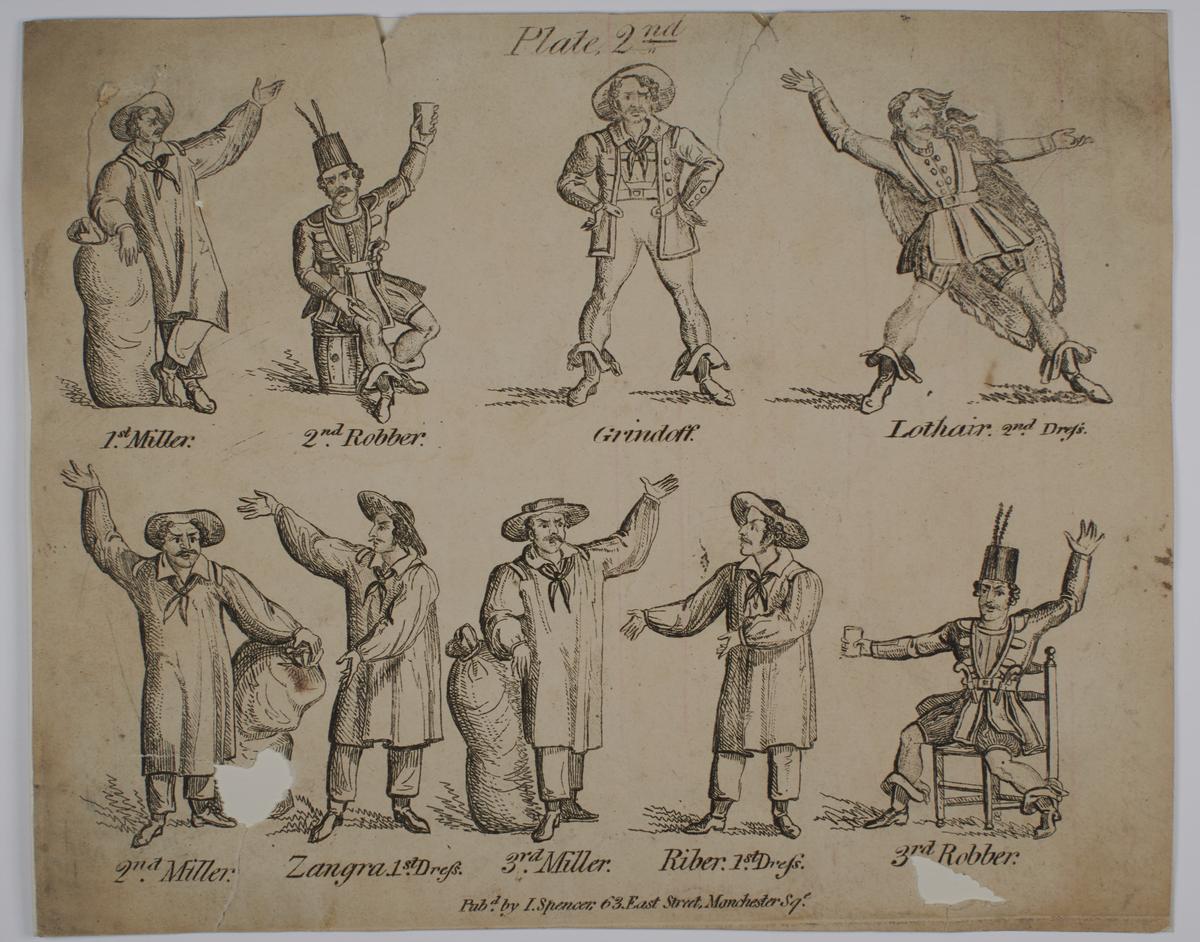 Plate, 2nd
1st Miller.
2nd Robber.
Grindoff.
Lothair. 2nd Dreſs.
2nd Miller.
Zangra. 1st Dreſs.
3rd Miller.
Riber. 1st Dreſs.
3rd Robber.
Pubd. by I. Spencer, 63. East Street, Manchester Sqe.